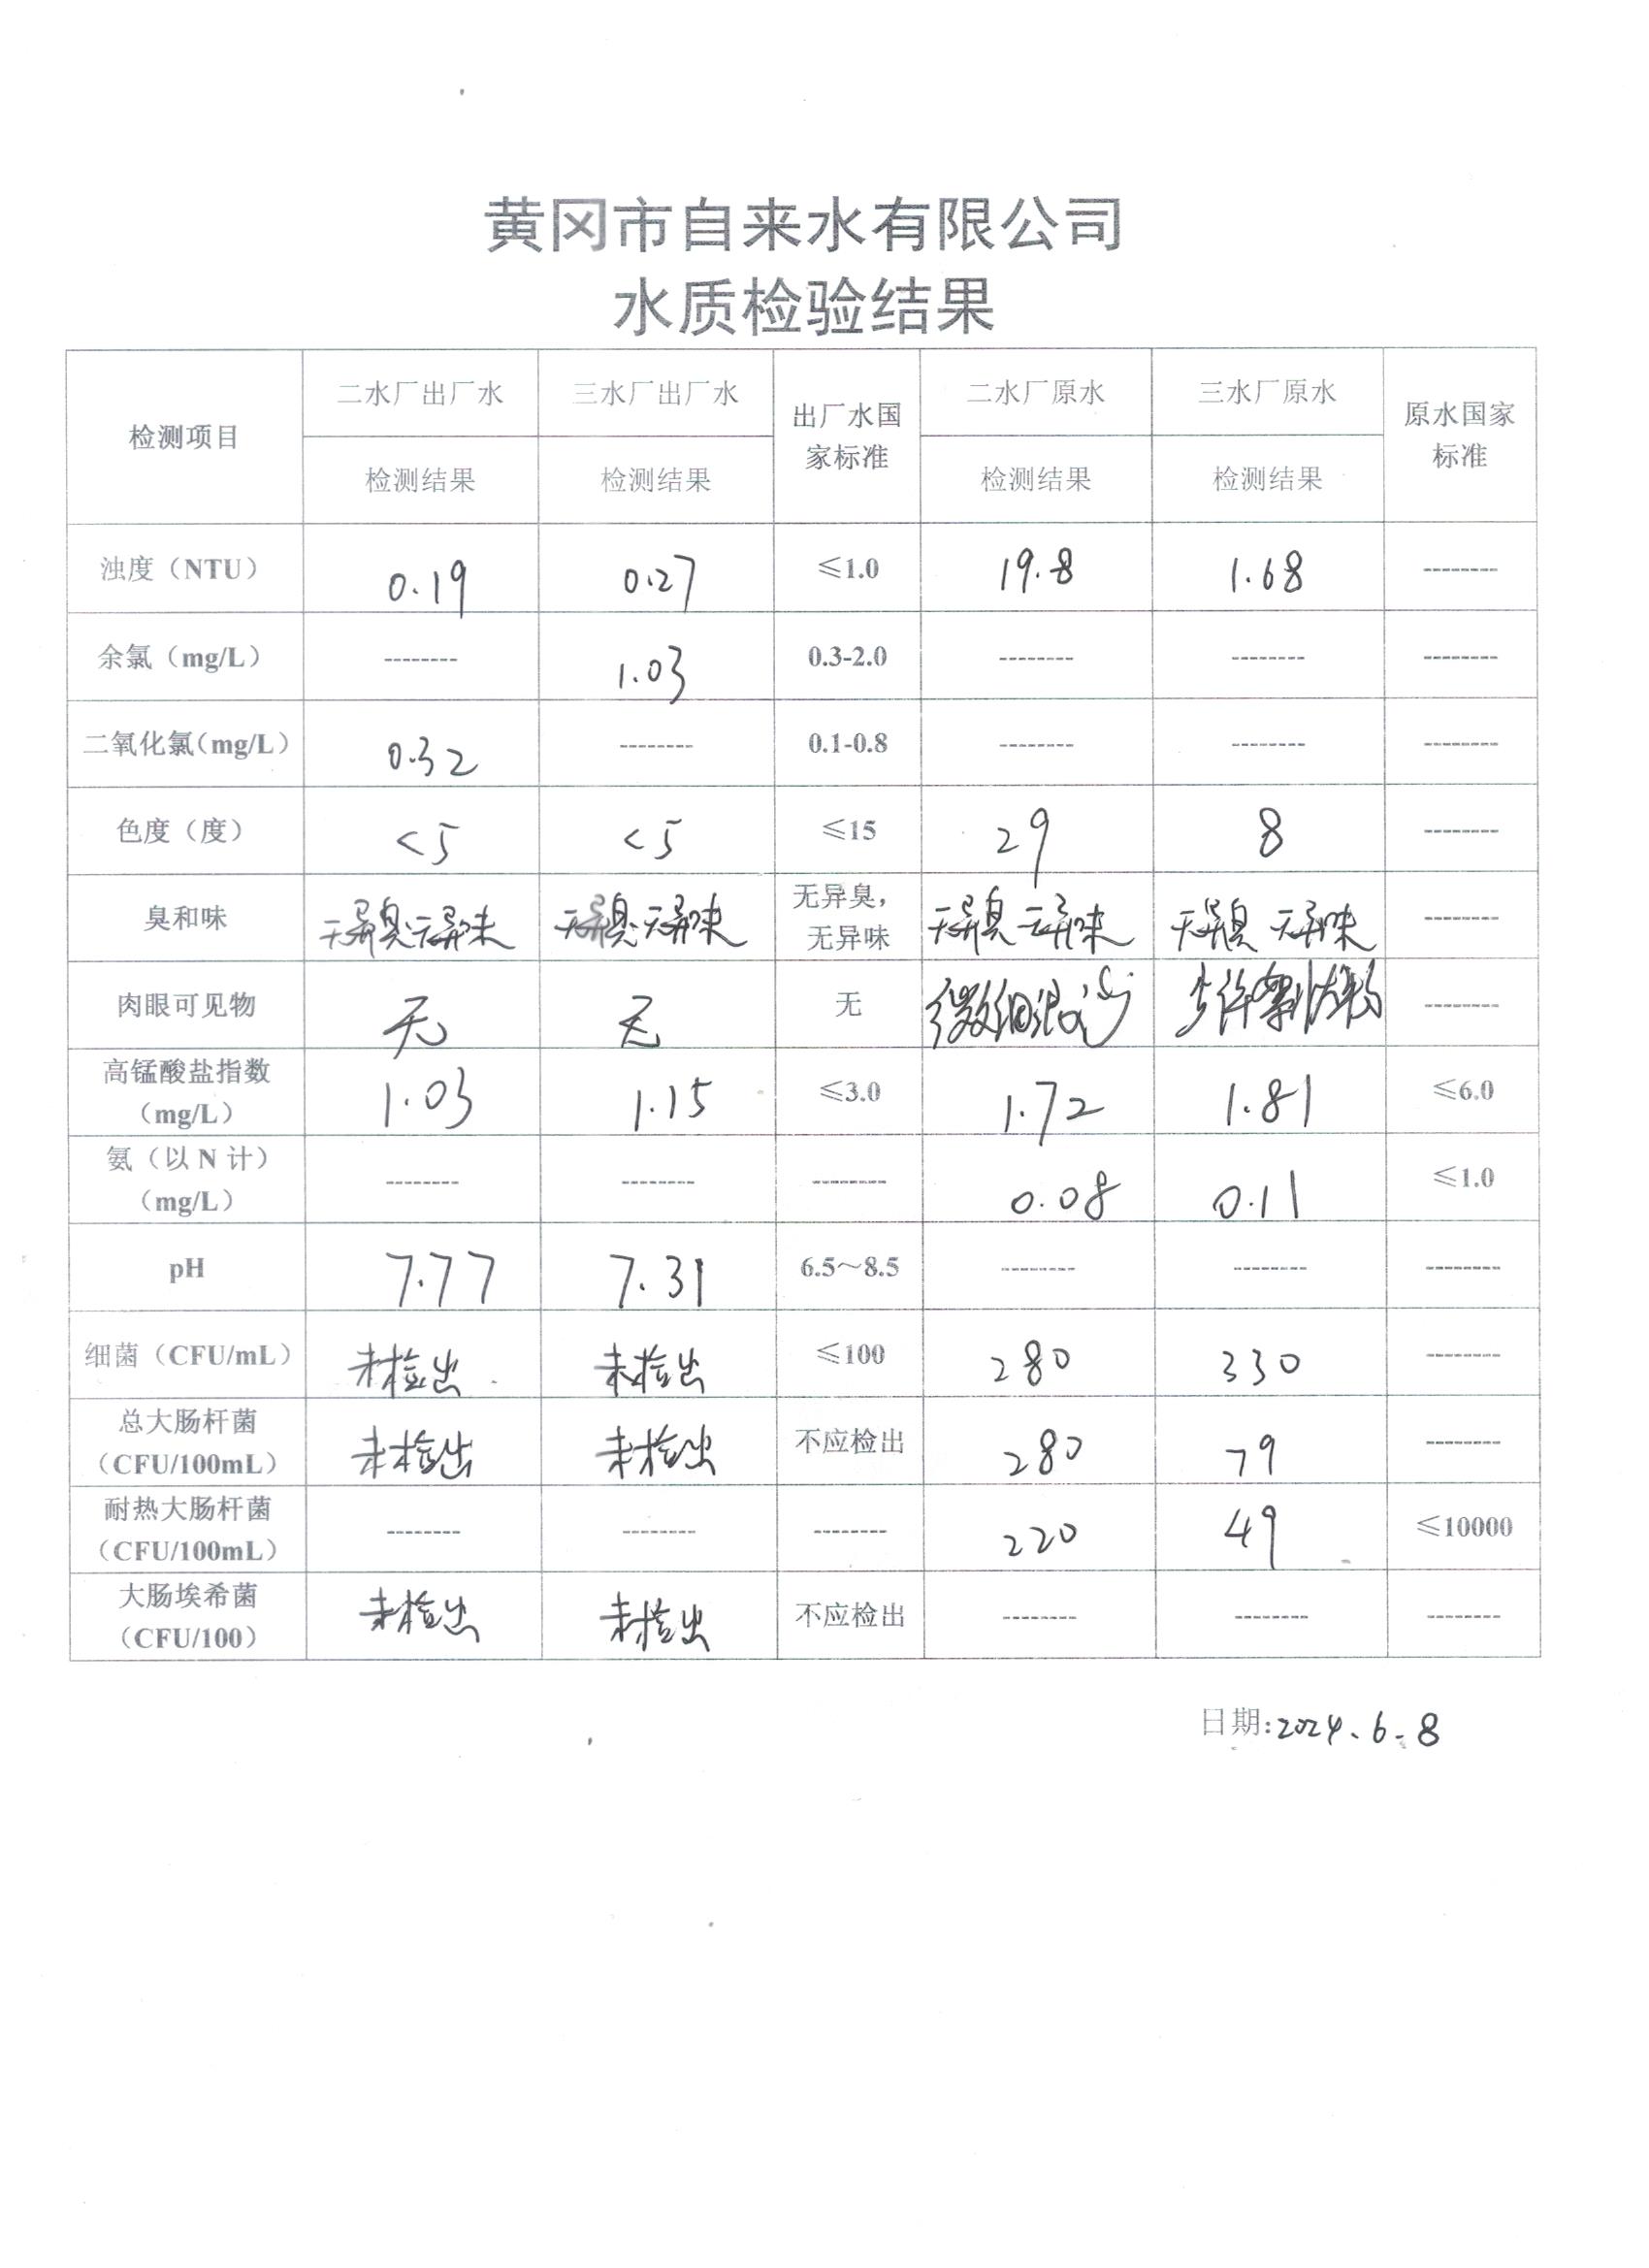 黄冈市自来水有限公司
水质检验结果
检测项目 二水厂出厂水 三水厂出厂水 出厂水国家标准 二水厂原水 三水厂原水 原水国家标准
检测结果 检测结果 检测结果 检测结果
浊度（NTU） 0.19 0.27 ≤1.0 19.8 1.68 --------
余氯（mg/L） -------- 1.03 0.3-2.0 -------- -------- --------
二氧化氯(mg/L) 0.32 -------- 0.1-0.8 -------- -------- --------
色度（度） <5 <5 ≤15 29 8 --------
臭和味 无异臭.无异味 无异臭.无异味 无异臭，无异味 无异臭 无异味 无异臭 无异味 --------
肉眼可见物 无 无 无 微细泥沙 少许絮状物 --------
高锰酸盐指数（mg/L） 1.03 1.15 ≤3.0 1.72 1.81 ≤6.0
氨（以 N 计）（mg/L） -------- -------- -------- 0.08 0.11 ≤1.0
pH 7.77 7.31 6.5～8.5 -------- -------- --------
细菌（CFU/mL） 未检出 未检出 ≤100 280 330 --------
总大肠杆菌（CFU/100mL） 未检出 未检出 不应检出 280 79 --------
耐热大肠杆菌（CFU/100mL） -------- -------- -------- 220 49 ≤10000
大肠埃希菌（CFU/100） 未检出 未检出 不应检出 -------- -------- --------
日期:2024.6.8